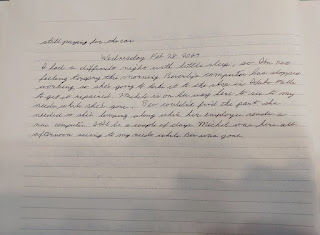 still praying for the car
Wednesday Feb 28 2024
I had a difficult night with little sleep, so I'm not
feeling tiptop this morning. Beverly's computer has stopped
working so she's going to take it to the shop in
to get it repaired. Michel is on her way here to see to my
needs while she's gone. Bev couldn't find the part she
needed so she's limping along while her employer sends a
new computer. Will be a couple of days. Michel was here all
afternoon seeing to my needs while Bev was gone.